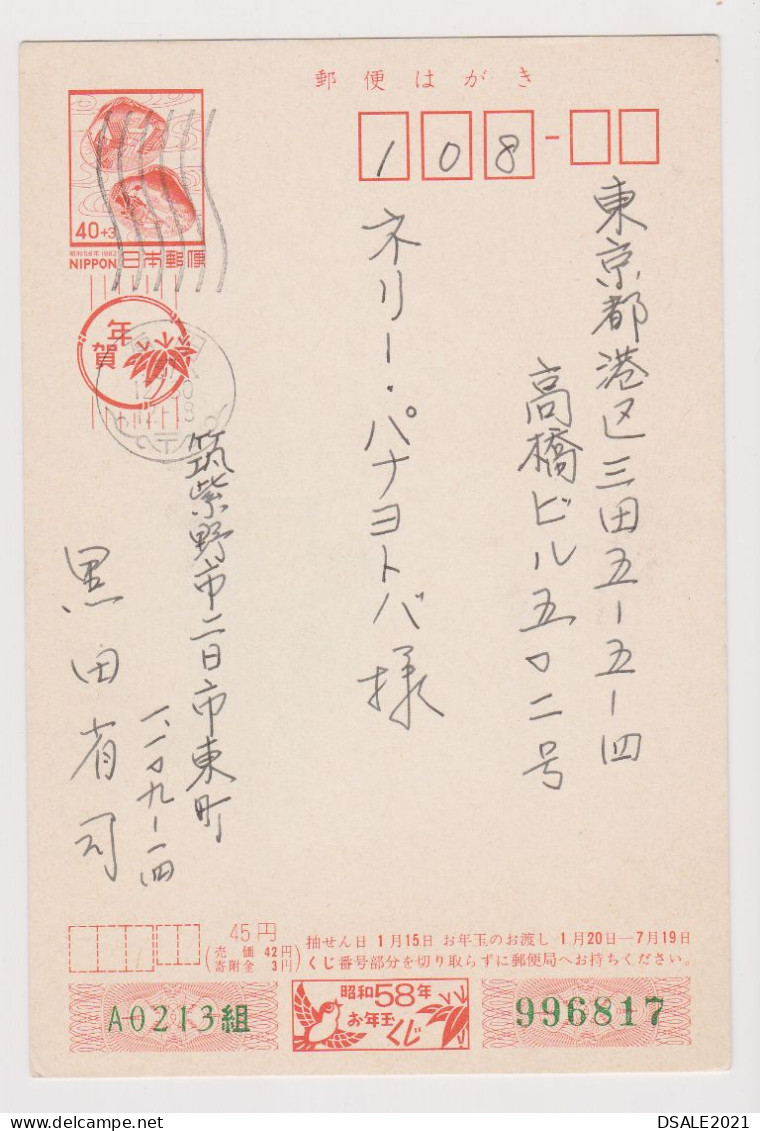 郵便はがき
108
40+3
昭和58年 1983
NIPPON 日本郵便
年賀
12
東京都港区三田五-五-四
高橋ビル五〇二号
ネリー・パナヨトバ様
筑紫野市二日市東町
一、一〇九-一四
黒田省司
45円
(売価 42円
寄附金 3円)
抽せん日 1月15日 お年玉のお渡し 1月20日—7月19日
くじ番号部分を切り取らずに郵便局へお持ちください。
A0213組
昭和58年
お年玉
くじ
996817
DSALE2021